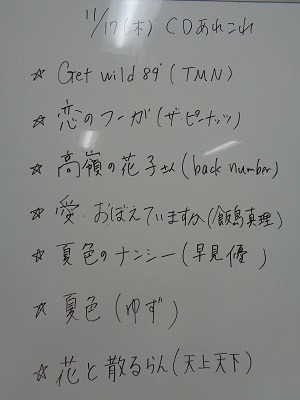 11/17(木) CDあれこれ
☆ Get wild 89'(TMN)
☆ 恋のフーガ(ザ・ピーナッツ)
☆ 高嶺の花子さん(back number)
☆ 愛・おぼえていますか(飯島真理)
☆ 夏色のナンシー(早見優)
☆ 夏色(ゆず)
☆ 花と散るらん(天上天下)